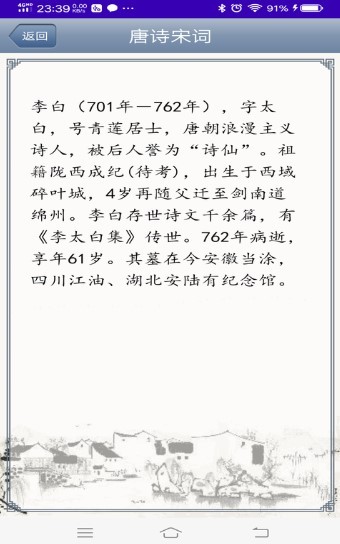 23:39
0.00 KB/s
91%
返回
唐诗宋词
李白（701年－762年），字太
白，号青莲居士，唐朝浪漫主义
诗人，被后人誉为“诗仙”。祖
籍陇西成纪(待考)，出生于西域
碎叶城，4岁再随父迁至剑南道
绵州。李白存世诗文千余篇，有
《李太白集》传世。762年病逝，
享年61岁。其墓在今安徽当涂，
四川江油、湖北安陆有纪念馆。